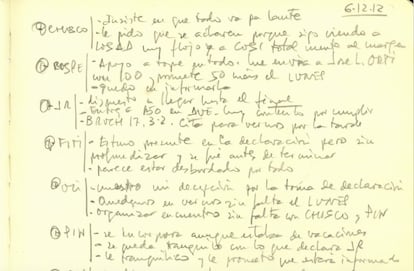 6.12.12
CHUSCO - Insiste en que todo va pa lante
- le pido que se aclaren porque sigo viendo a
muy flojo y a COSI totalmente al margen
- Apoyo a tope en todo. me envía a
con 100 y promete 50 más el LUNES
- quedo en informarle
- dispuesto a llegar hasta el final
- Entrega A50 en AVE. muy contento por cumplir
- BRUCH 17, 3-2. Cita para vernos por la tarde
- Estuvo presente en la declaración pero sin
profundizar y se fue antes de terminar
- parece estar desbordado por todo
- muestro mi decepción por la toma de declaración
- Quedamos en vernos sin falta el LUNES
- organizar encuentro sin falta con CHUSCO y PIN
PIN - se incorpora aunque estaba de vacaciones
- se queda tranquilo con lo que declara JR
- le tranquilizo y le prometo que estará informado